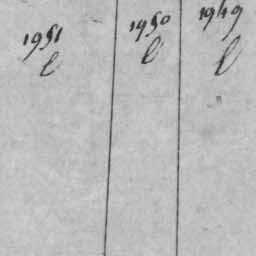 1951 1950 1949
l l l